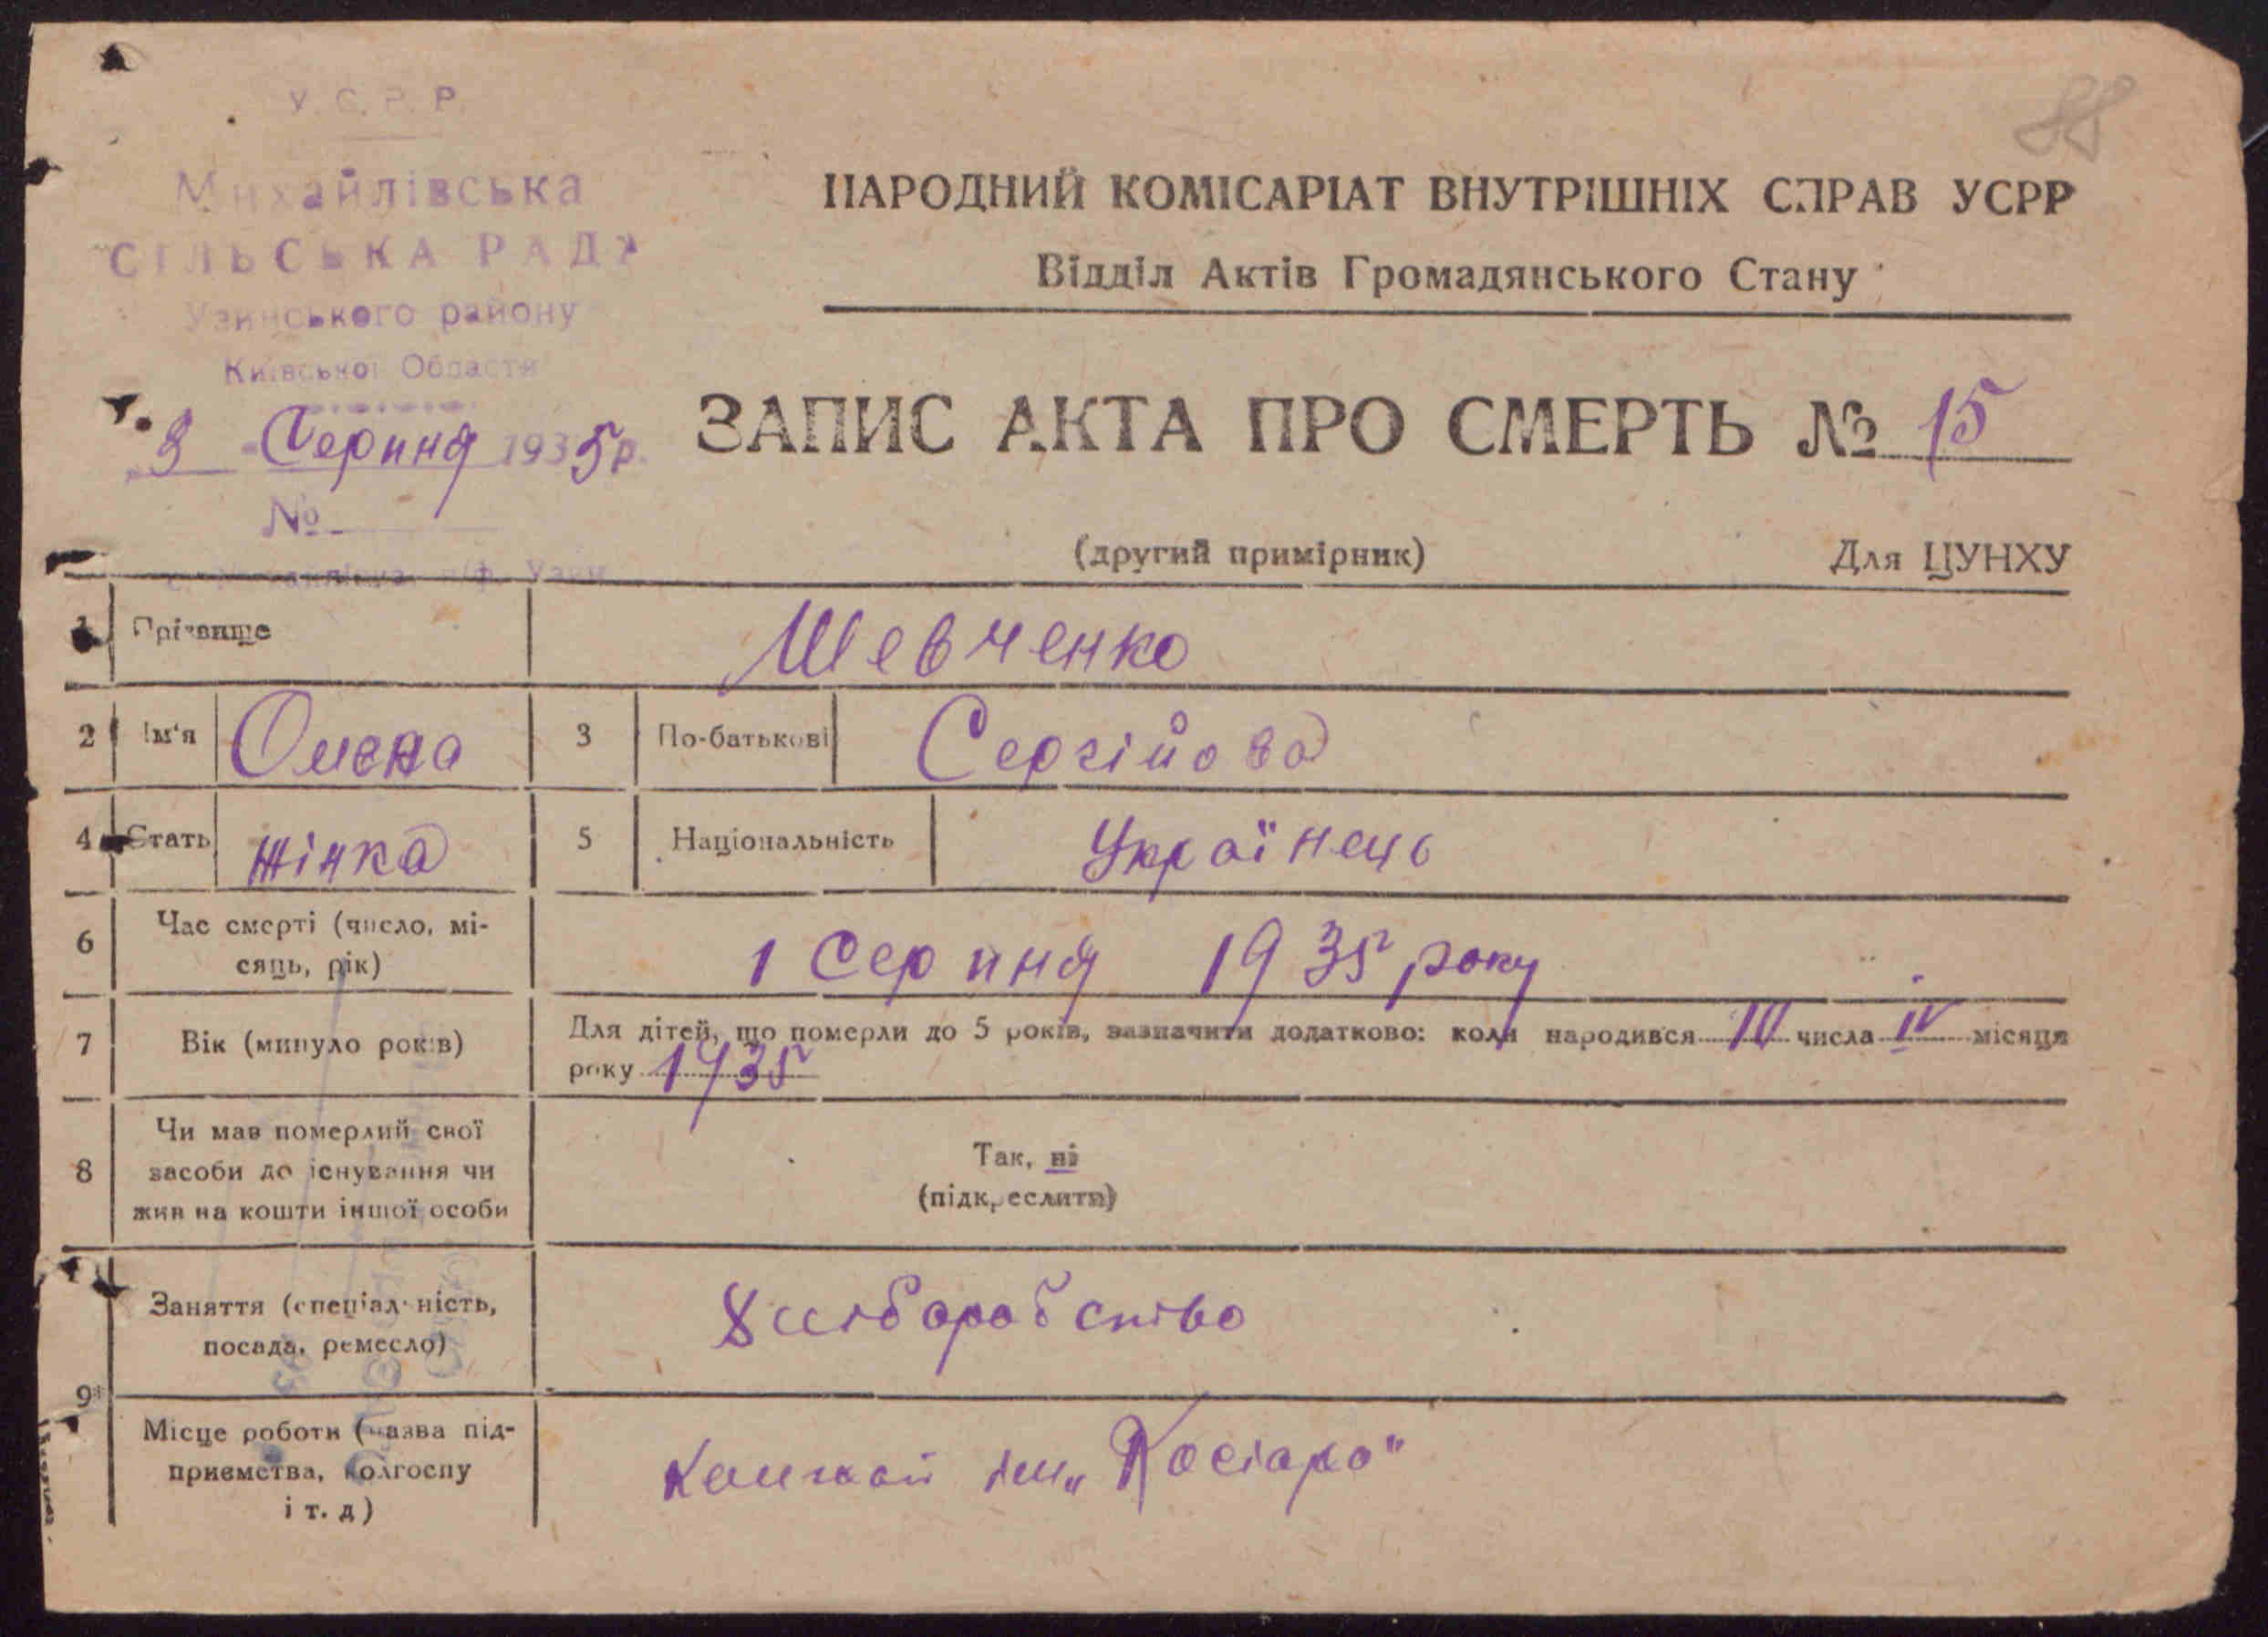 У.С.Р.Р.
Михайлівська
СІЛЬСЬКА РАДА
Узинського району
Київської Области
3 Серпня 1935р.
№
88
НАРОДНИЙ КОМІСАРІАТ ВНУТРІШНІХ СПРАВ УСРР
Відділ Актів Громадянського Стану
ЗАПИС АКТА ПРО СМЕРТЬ № 15
(другий примірник) Для ЦУНХУ
1 Прізвище Шевченко
2 Ім'я Олена 3 По-батькові Сергійова
4 Стать жінка 5 Національність Українець
6 Час смерті (число, мі-
сяць, рік) 1 Серпня 1935 року
7 Вік (минуло років) Для дітей, що померли до 5 років, зазначити додатково: коли народився 10 числа IV місяця
року 1935
8 Чи мав померлий свої
засоби до існування чи
жив на кошти іншої особи
Так, ні
(підкреслити)
9 Заняття (спеціальність,
посада, ремесло) Хліборобство
Місце роботи (назва під-
приємства, колгоспу
і т. д) Колгосп ім „Косіора"